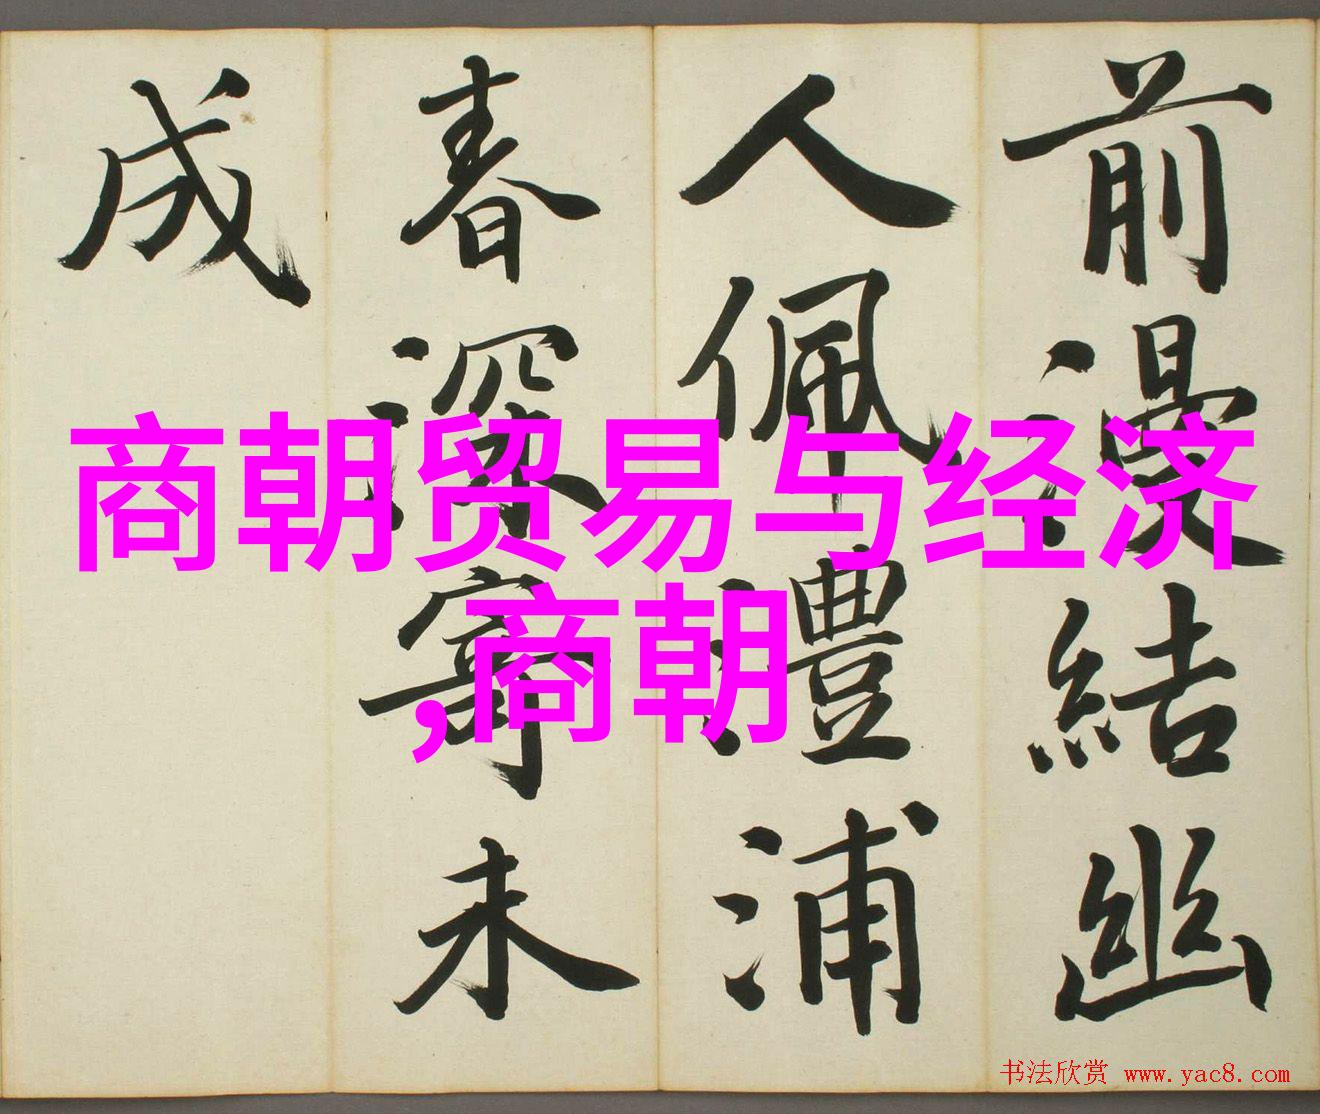 前漫結幽
人佩澧浦
春深寄未
成
商朝贸易与经济
,商朝
书法欣赏 www.yac8.com